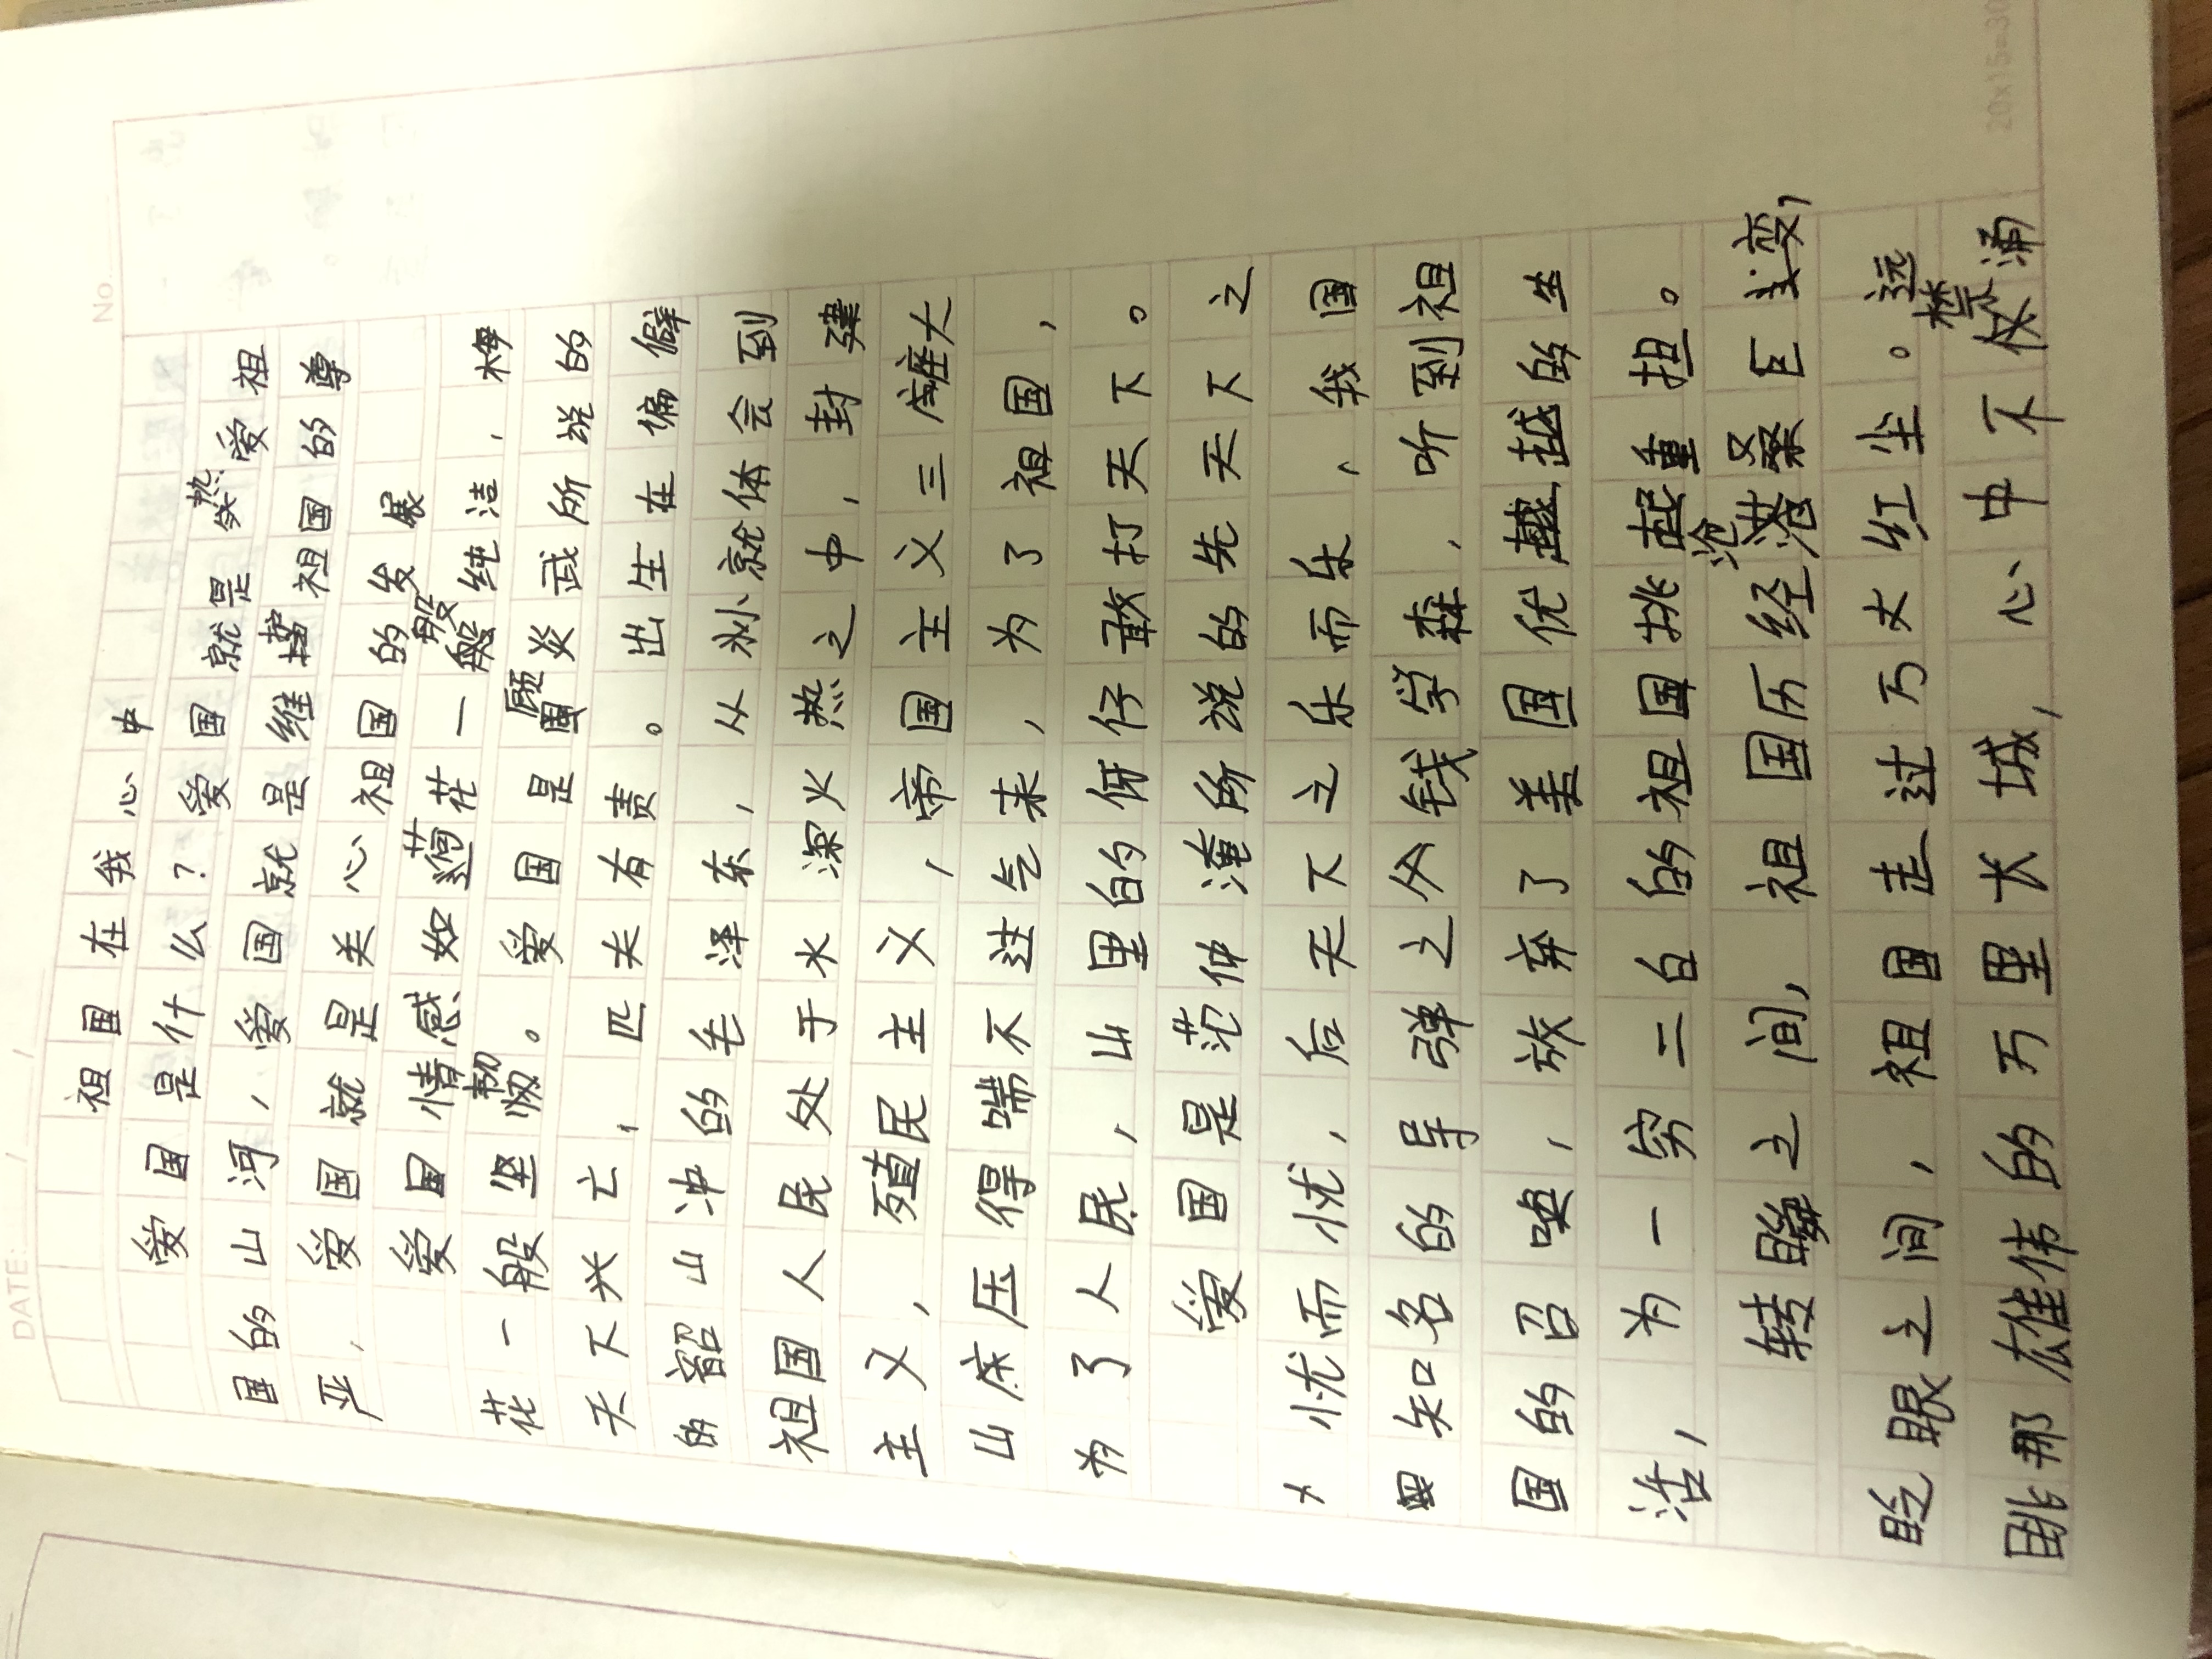 No.
DATE: / /
祖国在我心中
爱国是什么？爱国就是热爱祖
国的山河，爱国就是维护祖国的尊
严，爱国就是关心祖国的发展
爱国情感如荷花一般纯洁，梅
花一般坚韧。爱国是顾炎武所说的
天下兴亡，匹夫有责。出生在偏僻
的韶山冲的毛泽东，从小就体会到
祖国人民处于水深火热之中，封建
主义，殖民主义，帝国主义三座大
山压得喘不过气来，为了祖国，
为了人民，山里的伢仔敢打天下。
爱国是范仲淹所说的先天下之
忧而忧，后天下之乐而乐，我国
知名的导弹之父钱学森，听到祖
国的召唤，放弃了美国优越的生
活，为一穷二白的祖国挑起重担。
转瞬之间，祖国历经沧桑巨变，
眨眼之间，祖国走过万丈红尘。远
眺那雄伟的万里长城，心中不禁涌
20×15=30